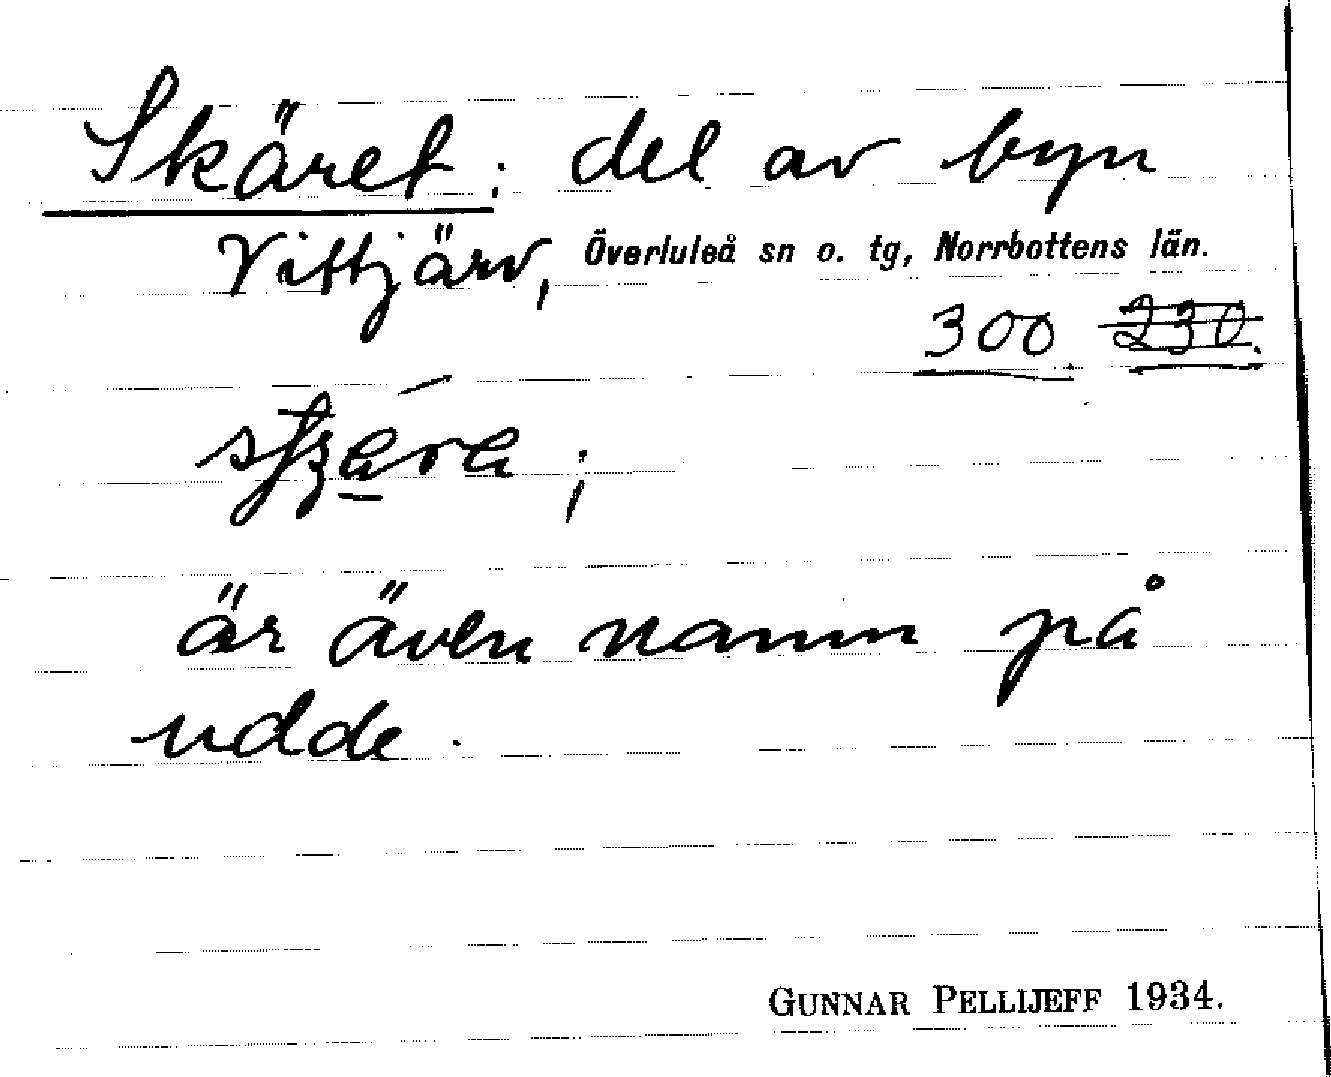 Skäret: del av byn
Vittjärv, Överluleå sn o. tg, Norrbottens län.
300 230.
är även namn på
udde.
GUNNAR PELLIJEFF 1934.